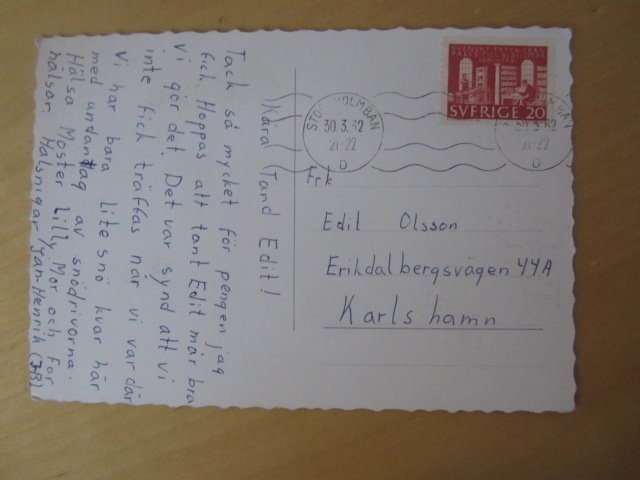 Kära Tand Edit!
Tack så mycket för pengen jag
fick. Hoppas att tant Edit mår bra
Vi gör det. Det var synd att vi
inte fick träffas när vi var där
Vi har bara lite snö kvar här
med undantag av snödrivorna.
Hälsa Moster Lilly, Mor och Far
hälsar. Hälsnigar Jan-Henrik (JB)
SVERIGE 20
30.3.62
21-22
D
30.3.62
21-22
D
Frk
Edit Olsson
Erikdalbergsvägen 44A
Karlshamn